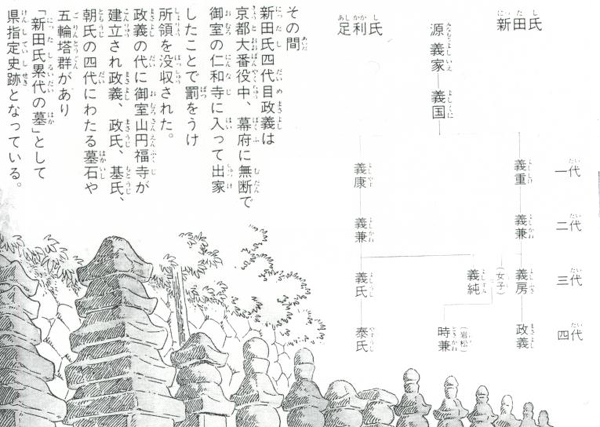 新田氏
足利氏
源義家―義国
一代
二代
三代
四代
義重
義兼
義房
政義
(女子)
義純
(岩松)
時兼
義康
義兼
義氏
泰氏
その間
新田氏四代目政義は
京都大番役中、幕府に無断で
御室の仁和寺に入って出家
したことで罰をうけ
所領を没収された。
政義の代に御室山円福寺が
建立され政義、政氏、基氏、
朝氏の四代にわたる墓石や
五輪塔群があり
「新田氏累代の墓」として
県指定史跡となっている。